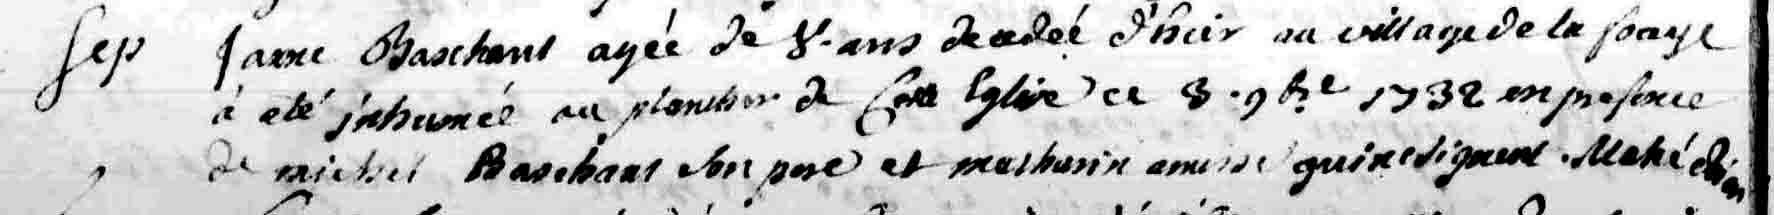 Sep Janne Baschant agée de 8. ans decedeé d'hier au village de la
à eté inhumée au plancher de Cette Eglise ce 8. 9bre 1732 en presence
de michel Baschant son pere et mathurin qui ne signent. Mahé